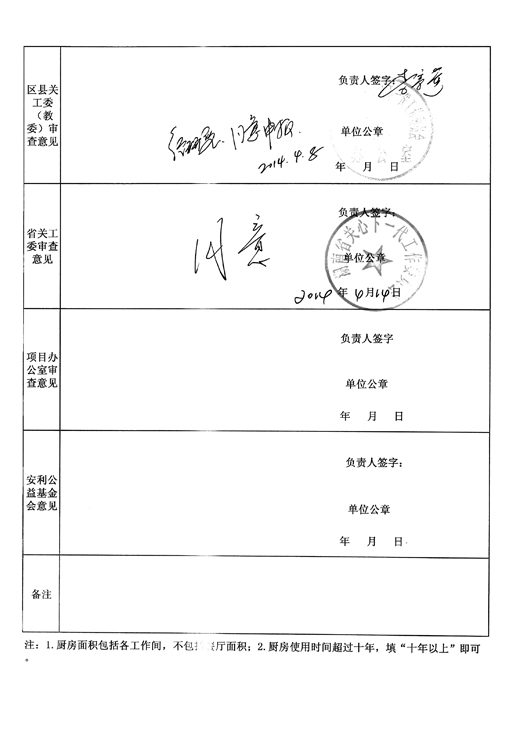 区县关
工委
（教
委）审
查意见
负责人签字：
同意申报
2014.4.8
单位公章
年 月 日
省关工
委审查
意见
负责人签字：
同意
单位公章
湖南省关心下一代工作委员会
2014 年 4 月 14 日
项目办
公室审
查意见
负责人签字
单位公章
年 月 日
安利公
益基金
会意见
负责人签字：
单位公章
年 月 日
备注
注：1.厨房面积包括各工作间，不包 餐厅面积；2.厨房使用时间超过十年，填“十年以上”即可
。